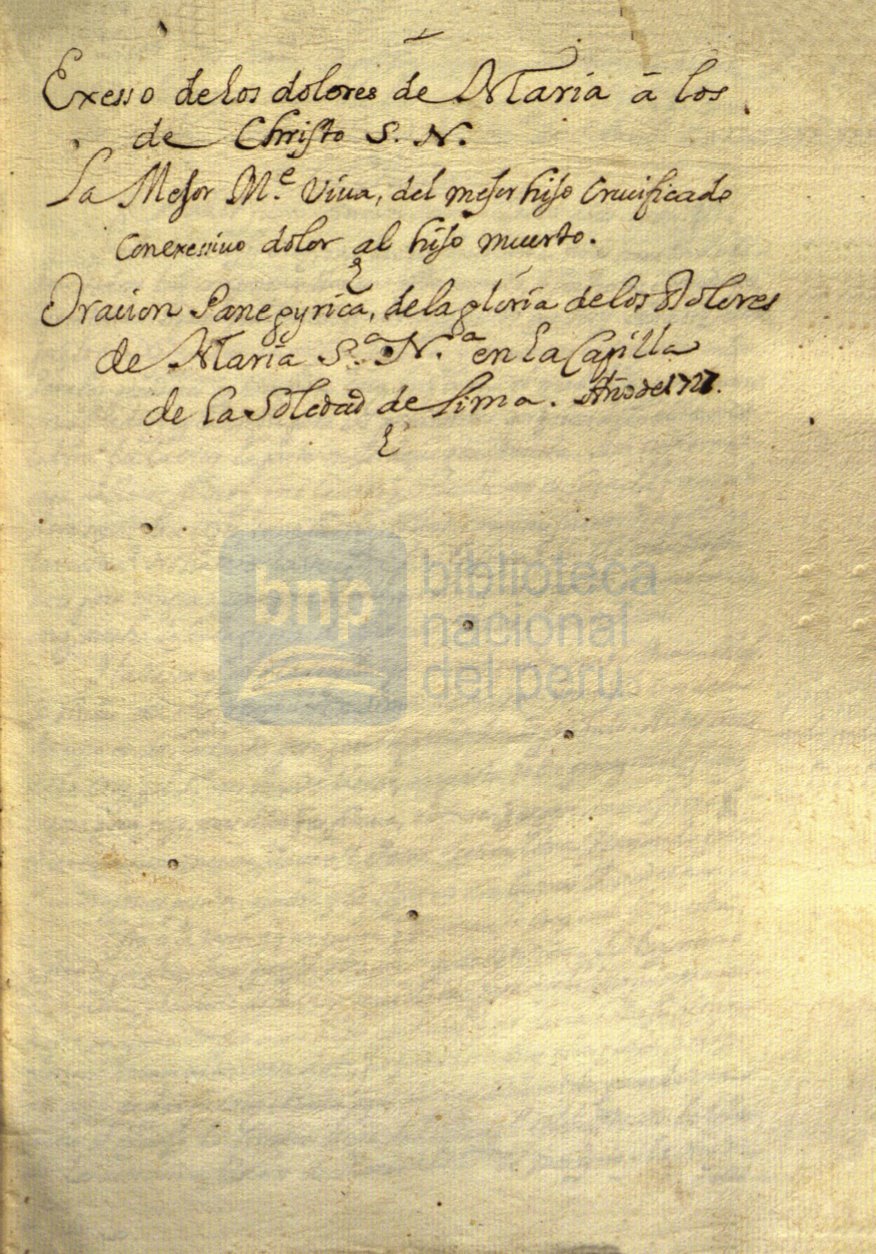 Exesso de los dolores de Maria â los
de Christo S. N.
La Mejor M.e Viva, del mejor hijo Crucificado
Con exessivo dolor al hijo muerto.
Oracion Panegyrica, de la gloria de los Dolores
de Maria S.a N.a en la Capilla
de la Soledad de Lima. Año de 1727.
bnp biblioteca
nacional
del perú